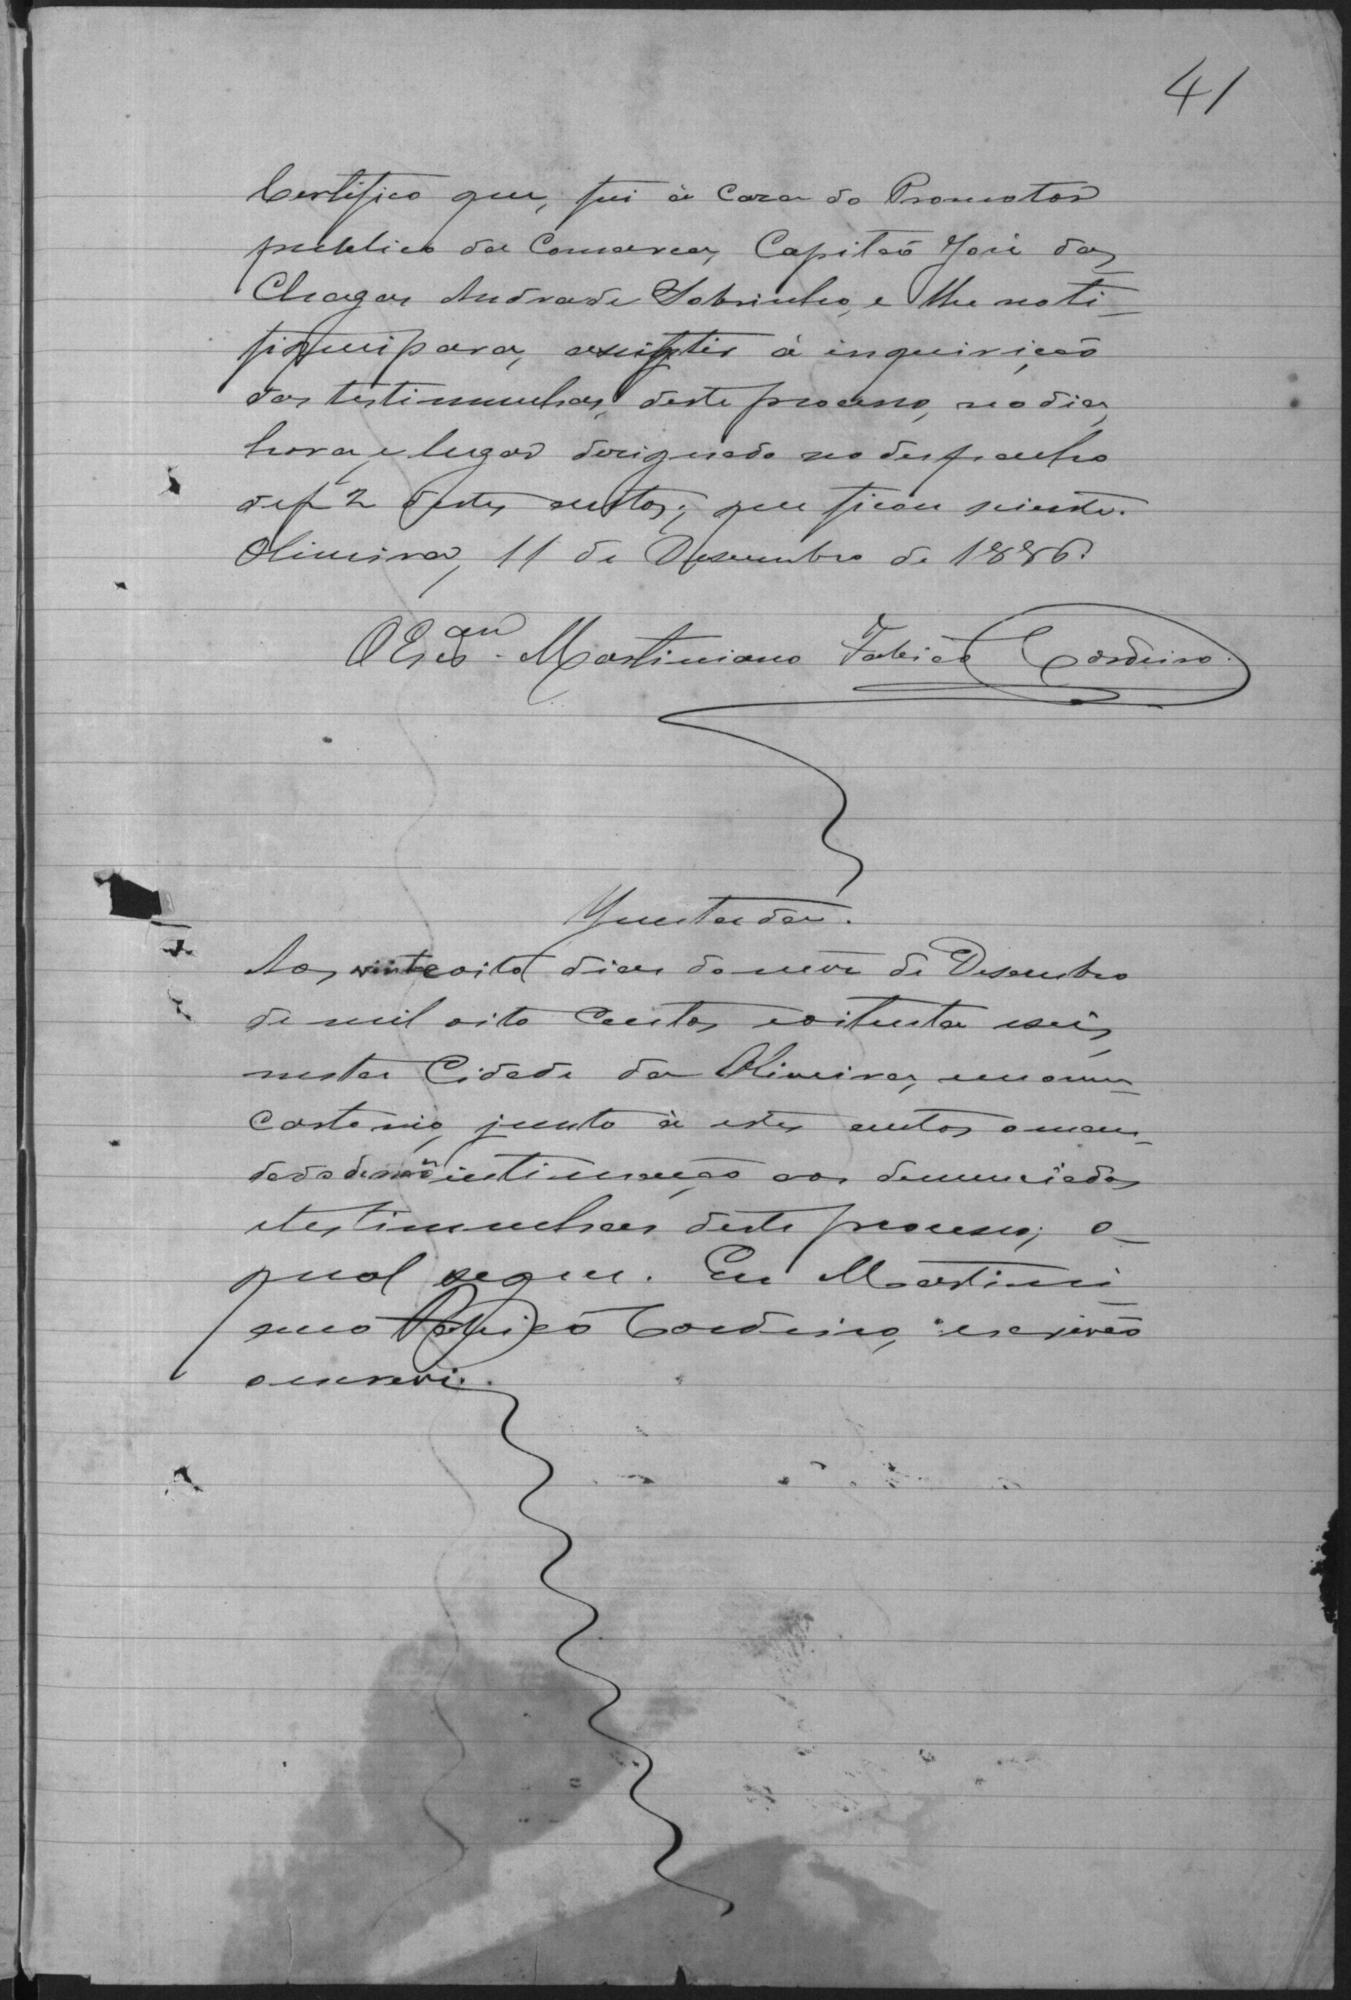 41
Certifico que, fui á caza do Promotor
publico da Comarca, Capitão José das
Chagas Andrade Sobrinho, e lhe noti-
fiquei para, assistir á inquirição
das testimunhas, deste processo, no dia,
hora, e lugar designado no despacho
de f 2 destes autos; que ficou sciente.
Oliveira, 11 de Desembro de 1886.
O Escam. Martiniano Fabião Cordeiro.
Juntada.
Aos vinteoito dias do mez de Desembro
de mil oito centos eoitenta eseis,
nesta Cidade da Oliveira, em meu
cartorio, junto á estes autos o man-
dado de intimação aos denunciados
etestimunhas deste processo; o
qual segue. Eu Martini-
ano Fabião Cordeiro, escrivão
o escrevi.